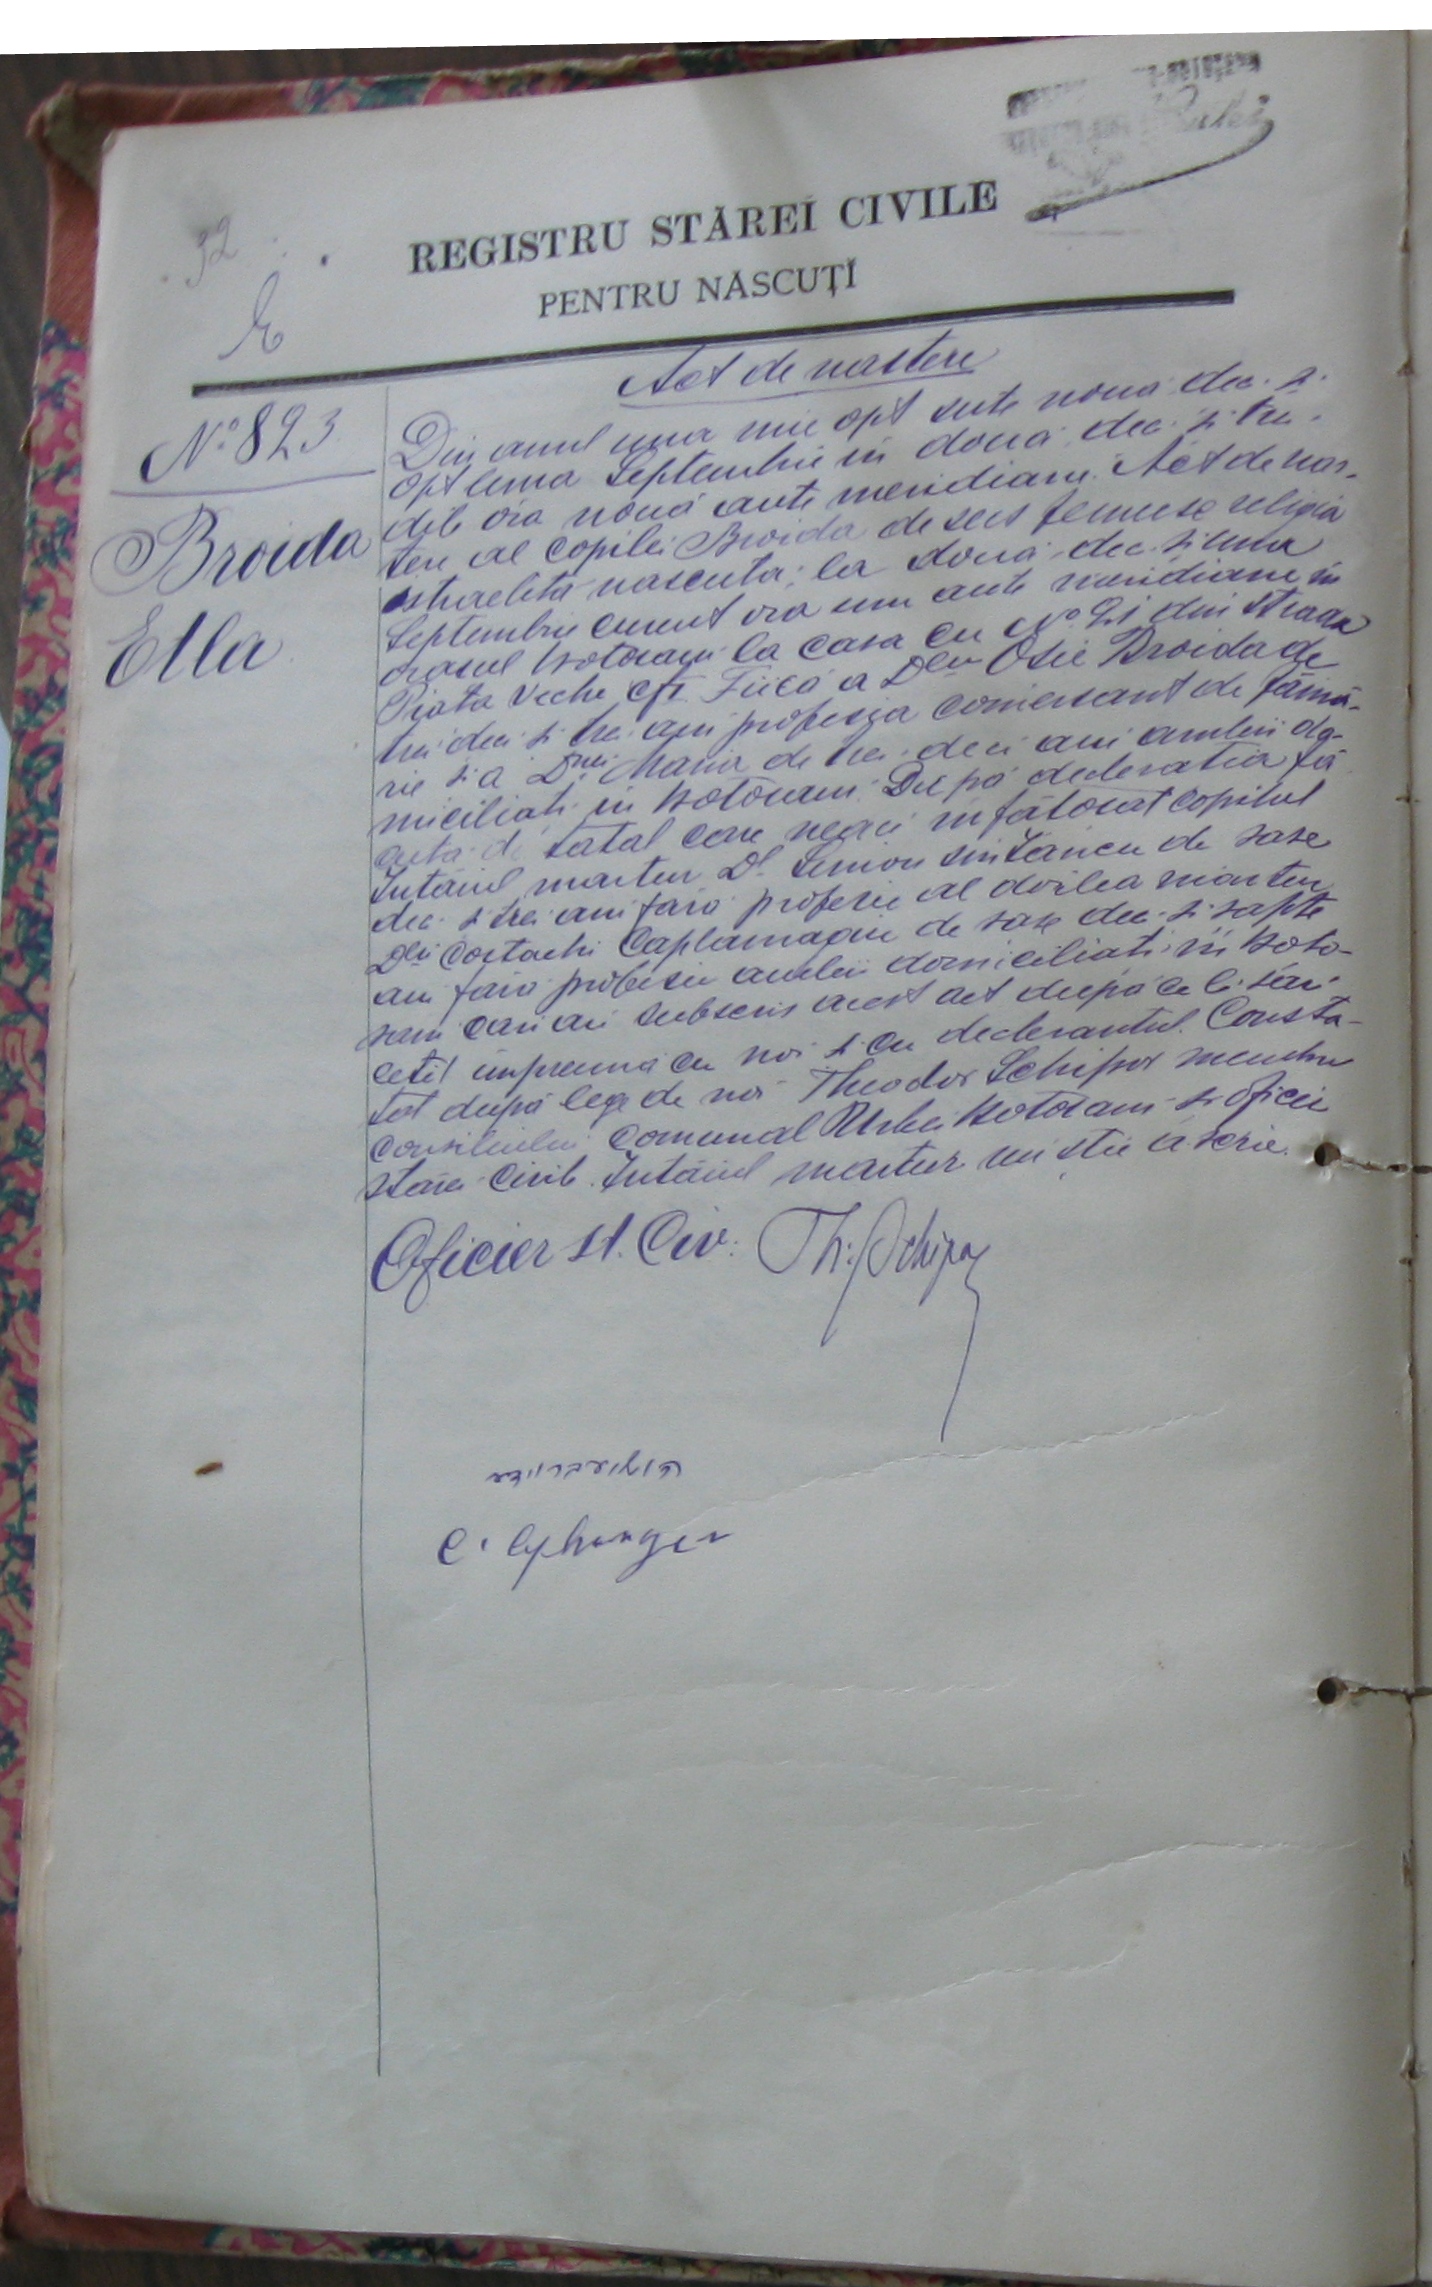 92
E
REGISTRU STĂREĬ CIVILE
PENTRU NĂSCUȚĬ
Act de nastere
No 823
Broida
Etla
Din anul una mie opt sute nouă deci si
opt luna Septembrie in două deci si trei
dile ora nouă ante meridiane. Act de nas-
tere al copilei Broida de secs femeesc religia
istraelită nascută la două deci si una
Septembrie curent ora unu ante meridiane in
orasul Botosani la casa cu No 21 din strada
Piata Veche Fiică a Dlui Osie Broida de
trei deci si trei ani profesia comersant de făină-
rie si a Dnei Maria de trei deci ani ambii do-
miciliati in Botosani. După declaratia fă
cuta de tatal care neau infătosat copilul
Intăiul martur Dl Simion sin Iancu de sase
deci si trei ani fără profesie al doilea martur
Dl Costachi Caplamagiu de sase deci si sapte
ani fără profesie ambii domiciliati in Boto-
sani cari au subscris acest act după ce li sau
cetit impreună cu noi si cu declarantul. Consta-
tat după lege de noi Theodor Schipor membru
consiliului comunal Urbei Botosani si oficer
stărei civile. Intăiul martur nu stie a scrie.
Oficier st. Civ. Th. Schipor
הושיע ברוידא